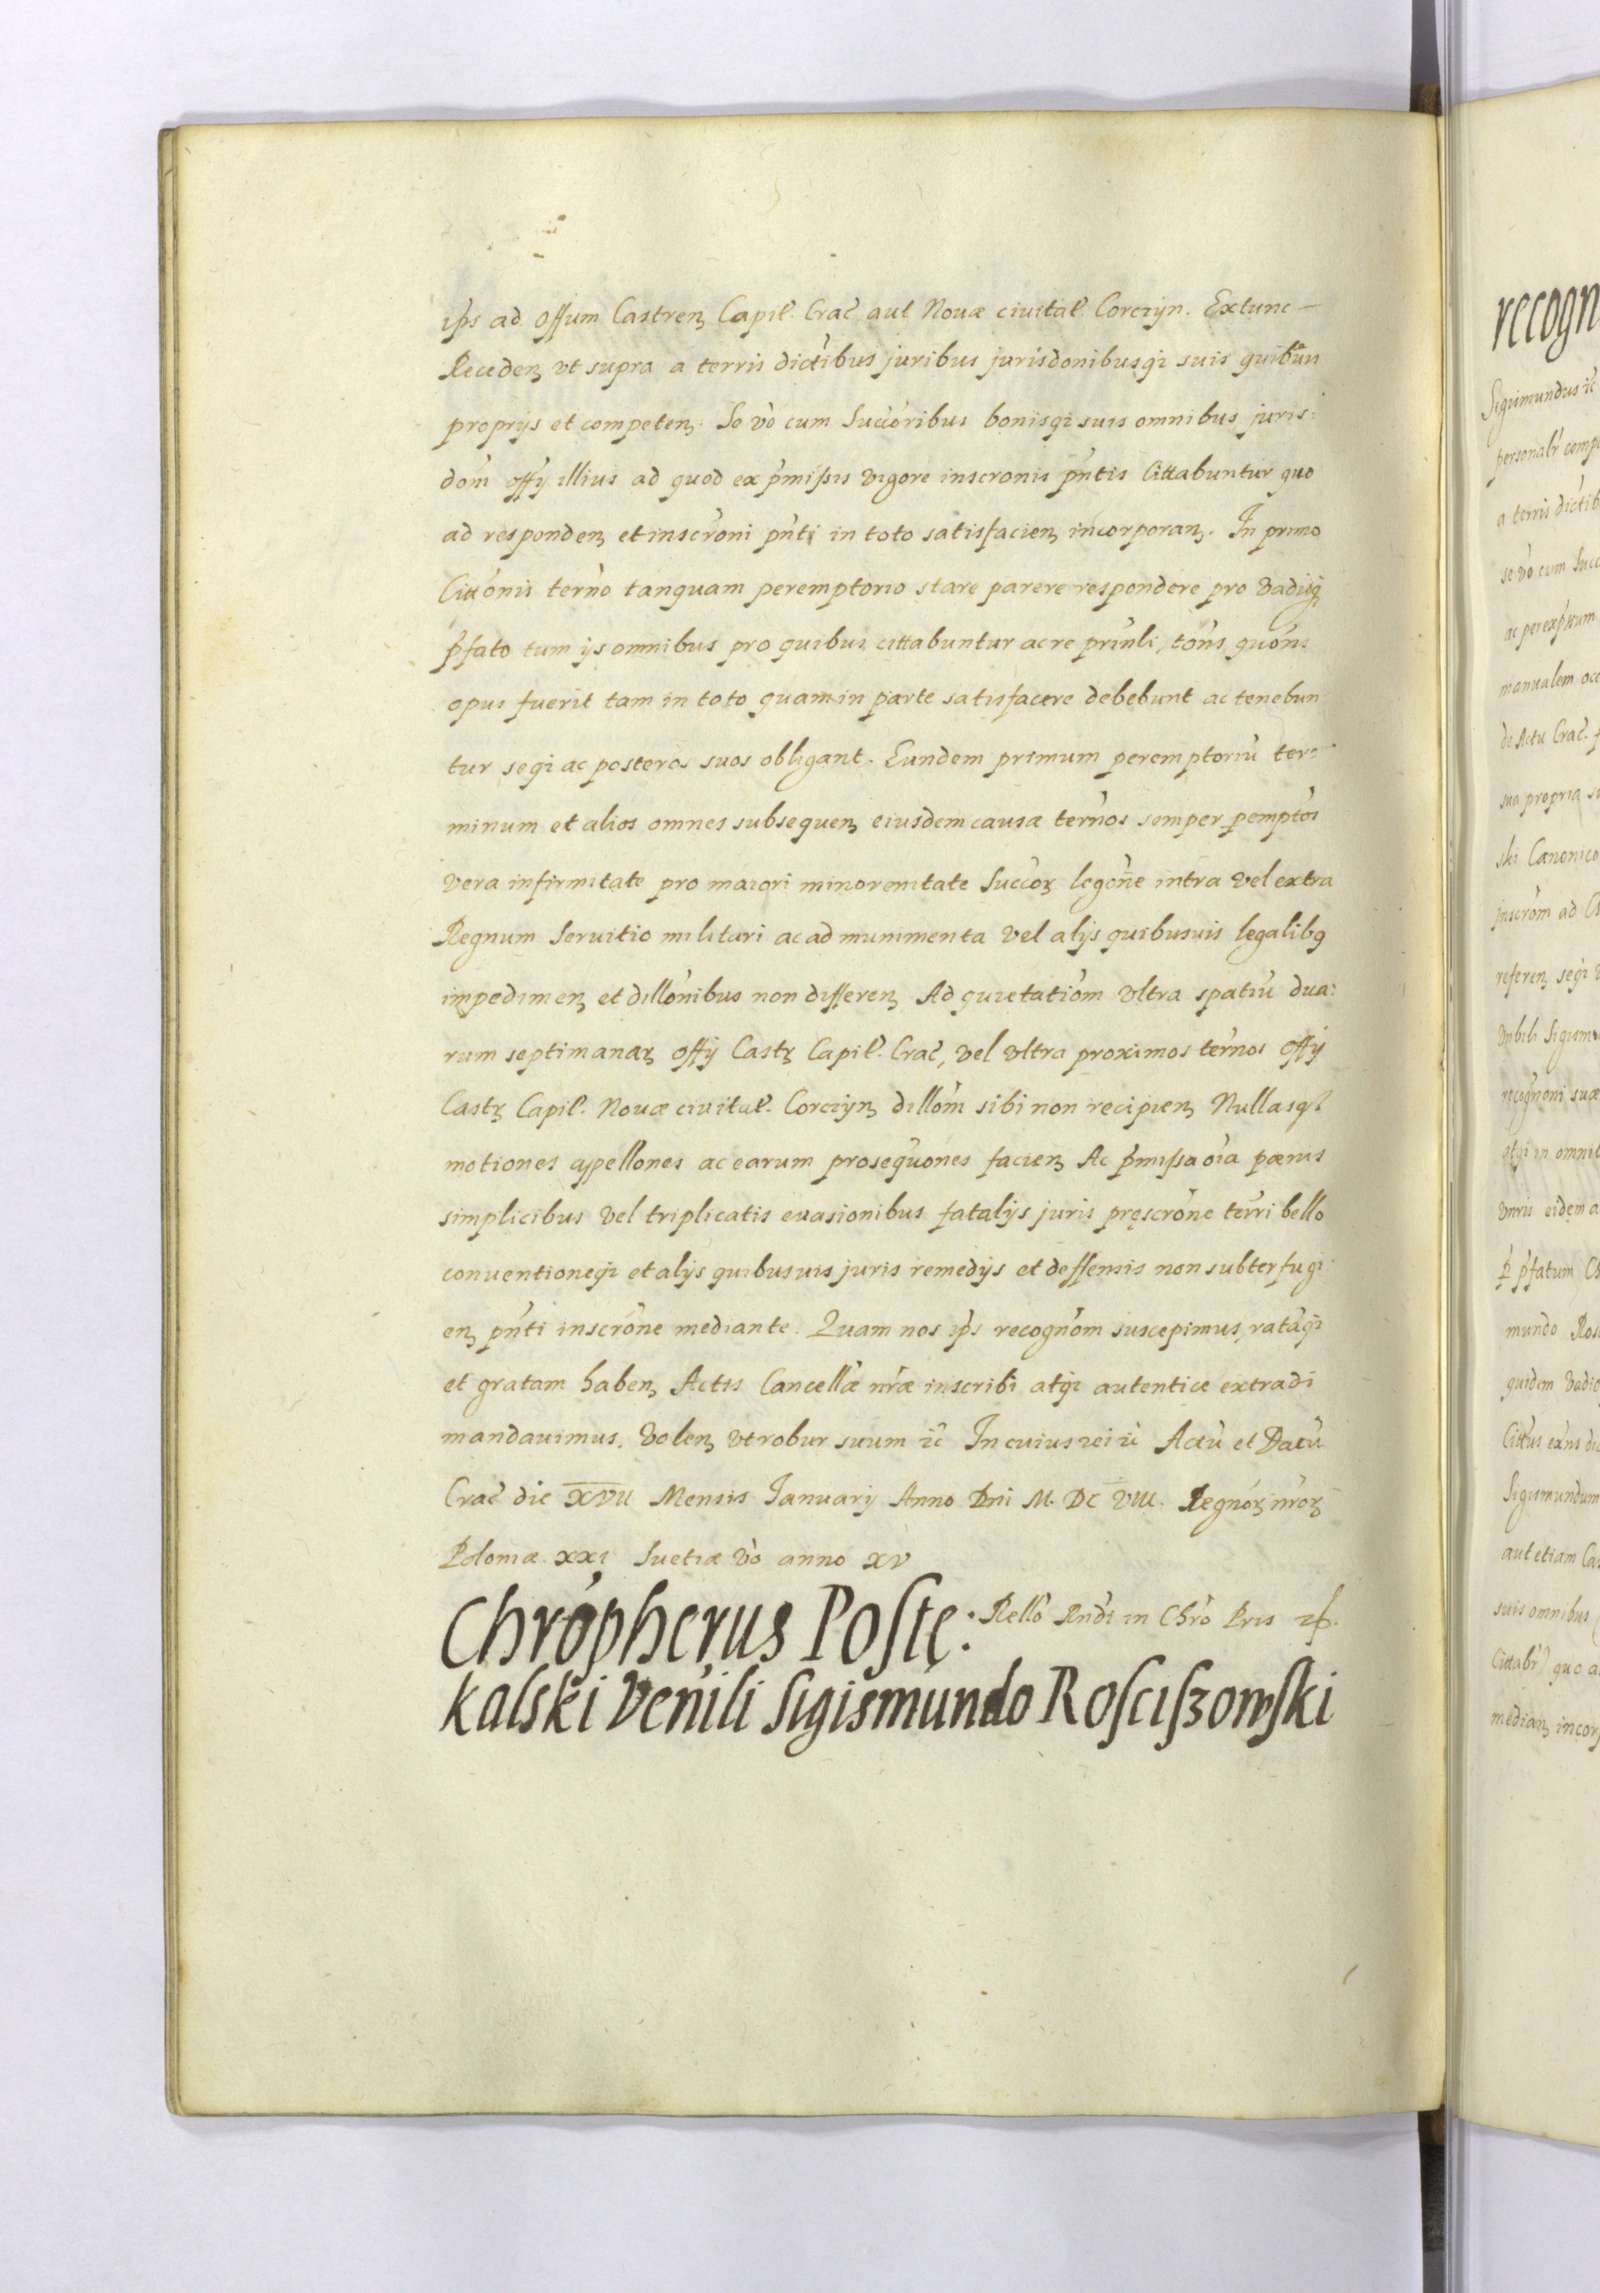 ips ad Offum Castren Capit. Crac̄ aut Novæ civitat. Corczyn. Extunc –
Receden vt supra a terris dictibus juribus jurisdonibusqz suis quibusvn
proprijs et competen. Se vo cum Succoribus bonisqz suis omnibus juris:
dōm offij illius ad quod ex pmissis vigore inscronis pntis Cittabuntur quo
ad responden et inscroni pnti in toto satisfacien incorporan. In primo
Cittonis terno tanquam peremptorio stare parere respondere pro vadijq
pfato tum ijs omnibus pro quibus cittabuntur ac re prinli, tons quons
opus fuerit tam in toto quam in parte satisfacere debebunt ac tenebun
tur seqz ac posteros suos obligant. Eundem primum peremptoriū ter:
minum et alios omnes subsequen eiusdem causæ ternos semper pemptos
vera infirmitate pro maiori minorennitate Succor legone intra vel extra
Regnum Servitio militari ac ad munimenta vel alijs quibusuis legalibq
impedimen et dillonibus non differen Ad quietatiom vltra spatiū dua:
rum septimanar offij Castr Capit. Crac̄, vel vltra proximos ternos offij
Castr Capit. Novæ civitat. Corczyn dillom sibi non recipien Nullasqz
motiones appellones ac earum prosequones facien Ac pmissa oia pœnis
simplicibus vel triplicatis euasionibus fatalijs juris pręscrone terri bello
conuentioneqz et alijs quibusuis juris remedijs et deffensis non subterfugi
en pnti inscrone mediante. Quam nos ips recognom suscepimus ratāqz
et gratam haben Actis Cancellæ nræ inscribi atqz autentice extradi
mandauimus. Volen vt robur suum ꝛc In cuius rei ꝛc Actū et Datū
Crac̄ die XVII Mensis Ianuarij Anno Dni M. DC VIII. Regnor nror
Poloniæ XXI Suetiæ vo anno XV
Chropherus Poste: Rello Rndi in Chro Pris
kalski Venili Sigismundo Rosciszowski
recogn
Sigismundus ꝛc
personalr comp
a terris dictib
se vo cum Succ
ac per expssum
manualem occ
de Actu Crac̄.
sua propria
ski Canonico
inscrom ad
referen seqz
Vnbili Sigism
recognoni suæ
atqz in omnib
vnris eidem a
p pfatum Ch
mundo Ros
quidem vadio
Cittus exns
Sigismundum
aut etiam Ca
suis omnibus
Cittabr quo a
median incor